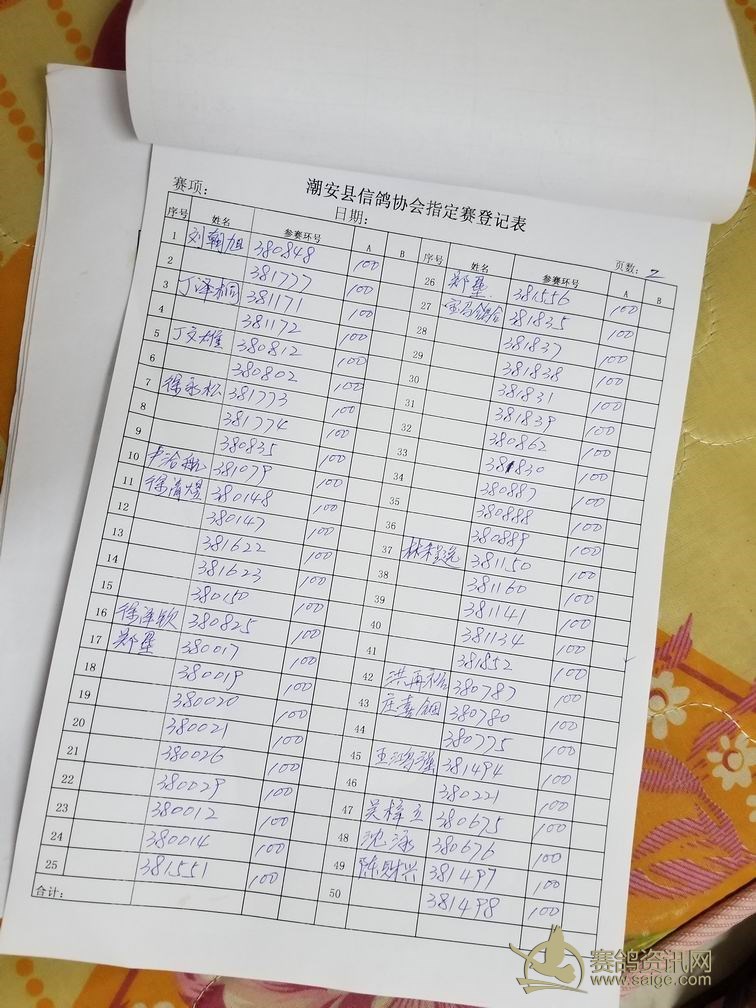 潮安县信鸽协会指定赛登记表
赛项： 日期： 页数：2
序号 姓名 参赛环号 A B 序号 姓名 参赛环号 A B
1 刘翰旭 380848 100 26 郑坚 381556 100
2 381727 100 27 381835 100
3 丁泽桐 381171 100 28 381837 100
4 381172 100 29 381838 100
5 丁文雄 380812 100 30 381831 100
6 380802 100 31 381839 100
7 徐永松 381773 100 32 380862 100
8 381774 100 33 381830 100
9 380835 100 34 380887 100
10 381079 100 35 380888 100
11 380148 100 36 380889 100
12 380147 100 37 381150 100
13 381622 100 38 381160 100
14 381623 100 39 381141 100
15 380150 100 40 381134 100
16 徐泽钦 380825 100 41 381852 100
17 郑坚 380017 100 42 380787 100
18 380019 100 43 380780 100
19 380020 100 44 380775 100
20 380021 100 45 王鸿强 381494 100
21 380026 100 46 380221 100
22 380029 100 47 吴梓立 380675 100
23 380012 100 48 沈泳 380676 100
24 380014 100 49 陈财兴 381497 100
25 381551 100 50 381498 100
合计：
赛鸽资讯网
www.saige.com